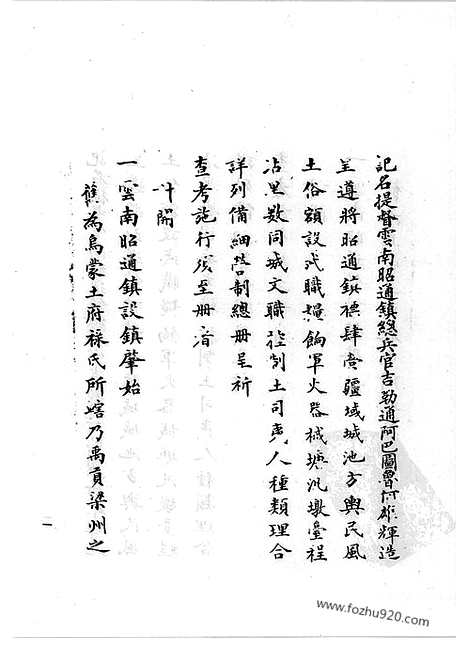 記名提督雲南昭通鎮總兵官吉勒通阿巴圖魯何雄輝造
呈遵將昭通鎮標肆營疆域城池方輿民風
土俗額設武職糧餉軍火器械塘汛墩臺程
站里數同城文職管制土司夷人種類理合
詳列備細營制總冊呈祈
查考施行須至冊者
計開
一雲南昭通鎮設鎮肇始
舊為烏蒙土府祿氏所轄乃禹貢梁州之
二
www.fozhu920.com